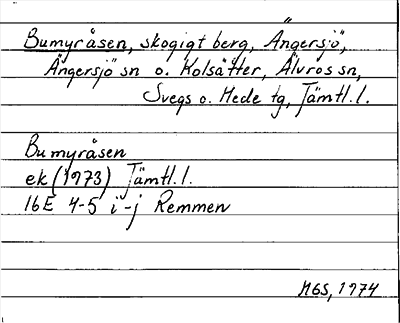 Bumyråsen, skogigt berg, Ängersjö,
Ängersjö sn o. Kolsätter, Älvros sn,
Svegs o. Hede tg, Jämtl. l.
Bumyråsen
ek (1973) Jämtl. l.
16E 4-5 i-j Remmen
NGS, 1974